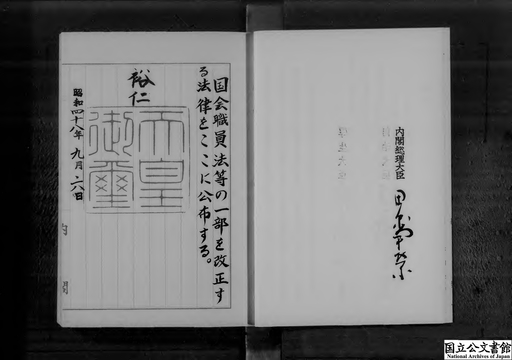 内閣総理大臣
田中角榮
国会職員法等の一部を改正す
る法律をここに公布する。
裕仁
天皇
御璽
昭和四十八年九月六日
内
閣
国立公文書館
National Archives of Japan